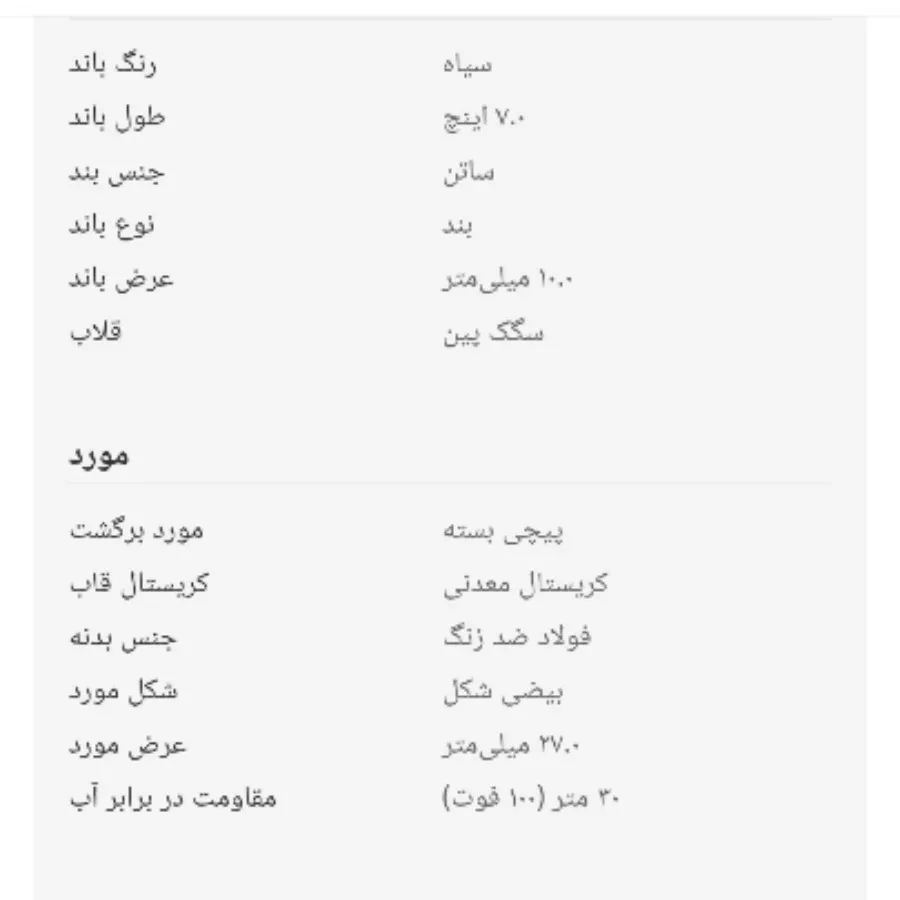 رنگ باند سیاه
طول باند ۷.۰ اینچ
جنس بند ساتن
نوع باند بند
عرض باند ۱۰.۰ میلی‌متر
قلاب سگک پین
مورد
مورد برگشت پیچی بسته
کریستال قاب کریستال معدنی
جنس بدنه فولاد ضد زنگ
شکل مورد بیضی شکل
عرض مورد ۲۷.۰ میلی‌متر
مقاومت در برابر آب ۳۰ متر (۱۰۰ فوت)